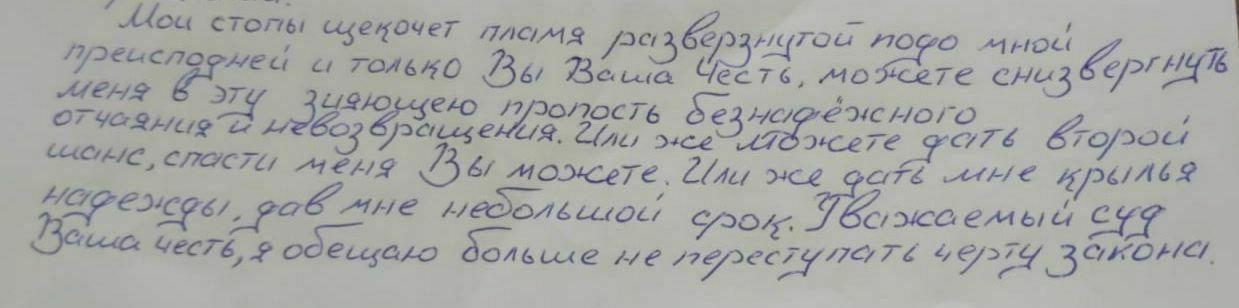 Мои стопы щекочет пламя разверзнутой подо мной
преисподней и только Вы Ваша Честь, можете снизвергнуть
меня в эту зияющею пропость безнадёжного
отчаяния и невозвращения. Или же можете дать второй
шанс, спасти меня Вы можете. Или же дать мне крылья
надежды, дав мне небольшой срок. Уважаемый суд
Ваша честь, я обещаю больше не переступать черту закона.